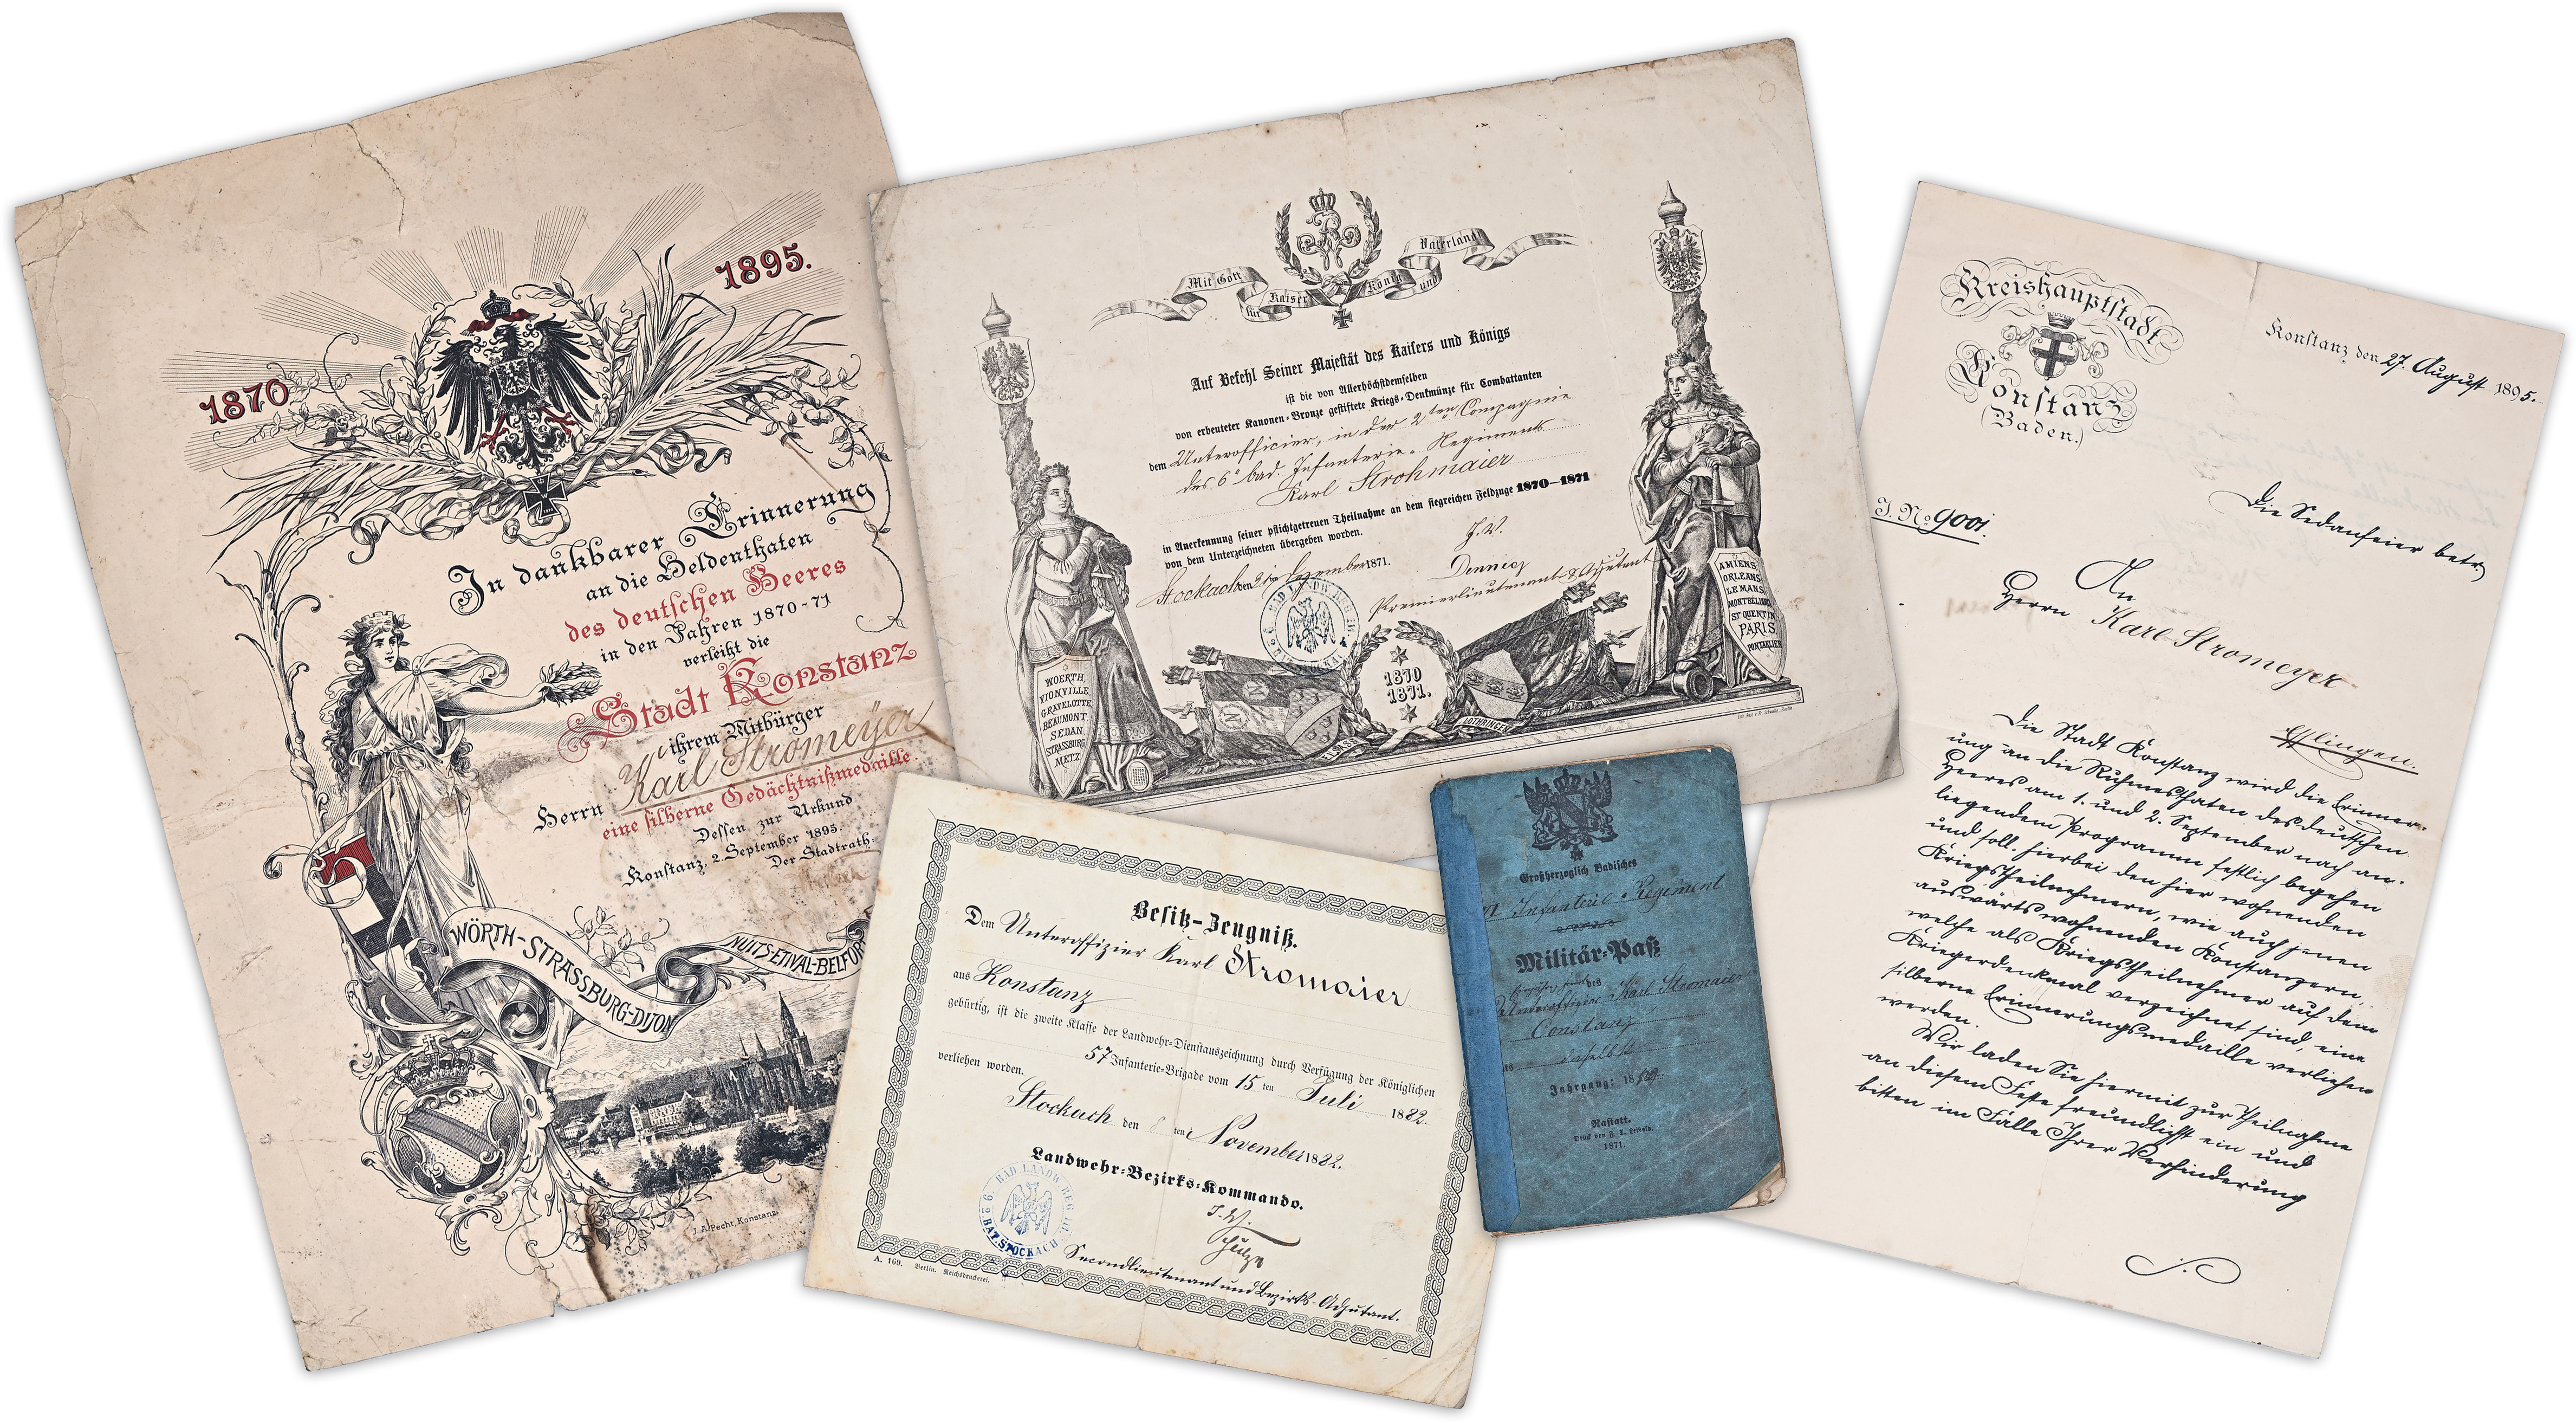 1870
1895.
In dankbarer Erinnerung
an die Heldenthaten
des deutschen Heeres
in den Jahren 1870-71
verleiht die
Stadt Konstanz
ihrem Mitbürger
Herrn Karl Stromeyer
eine silberne Gedächtnißmedaille.
Dessen zur Urkund
Konstanz, 2. September 1895.
Der Stadtrath
WÖRTH-STRASSBURG-DIJON
NUITS-ETIVAL-BELFORT
J. A. Pecht, Konstanz.
Mit Gott für Kaiser König und Vaterland
Auf Befehl Seiner Majestät des Kaisers und Königs
ist die von Allerhöchstdemselben
von erbeuteter Kanonen-Bronze gestiftete Kriegs-Denkmünze für Combattanten
dem Unterofficier, in der 2ten Compagnie
des 6. bad. Infanterie-Regiments
Karl Strohmaier
in Anerkennung seiner pflichtgetreuen Theilnahme an dem siegreichen Feldzuge 1870–1871
von dem Unterzeichneten übergeben worden.
Stockach den Dezember 1871.
J. V.
Premierlieutenant & Adjutant
WOERTH,
VIONVILLE
GRAVELOTTE
BEAUMONT,
SEDAN,
STRASSBURG
METZ
AMIENS
ORLEANS
LE MANS
MONTBELIARD
ST QUENTIN
PARIS
PONTARLIER
1870
1871.
ELSASS
LOTHRINGEN
Besitz-Zeugniß.
Dem Unteroffizier Karl Stromaier
aus Konstanz
gebürtig, ist die zweite Klasse der Landwehr-Dienstauszeichnung durch Verfügung der Königlichen
57 Infanterie-Brigade vom 15 ten Juli 1882.
verliehen worden.
Stockach den 8 ten November 1882.
Landwehr-Bezirks-Kommando.
J. V.
Schulze
Secondlieutenant und Bezirks-Adjutant.
6. BAD. LANDW. REG.
BAT. STOCKACH
A. 169. Berlin. Reichsdruckerei.
Großherzoglich Badisches
VI Infanterie-Regiment
Militär-Paß
des
Unteroffizier Karl Stromaier
Constanz
daselbst
Jahrgang: 18
Rastatt.
1871.
Kreishauptstadt
Konstanz
(Baden.)
Konstanz den 27. August 1895.
J. No 9001.
Die Sedanfeier betr.
An
Herrn Karl Stromeyer
Eßlingen.
Die Stadt Konstanz wird die Erinner-
ung an die Ruhmesthaten des deutschen
Heeres am 1. und 2. September nach an-
liegendem Programm festlich begehen
und soll hierbei den hier wohnenden
Kriegstheilnehmern, wie auch jenen
auswärts wohnenden Konstanzern,
welche als Kriegstheilnehmer auf dem
Kriegerdenkmal verzeichnet sind, eine
silberne Erinnerungsmedaille verliehen
werden.
Wir laden Sie hiermit zur Theilnahme
an diesem Feste freundlichst ein und
bitten im Falle Ihrer Verhinderung